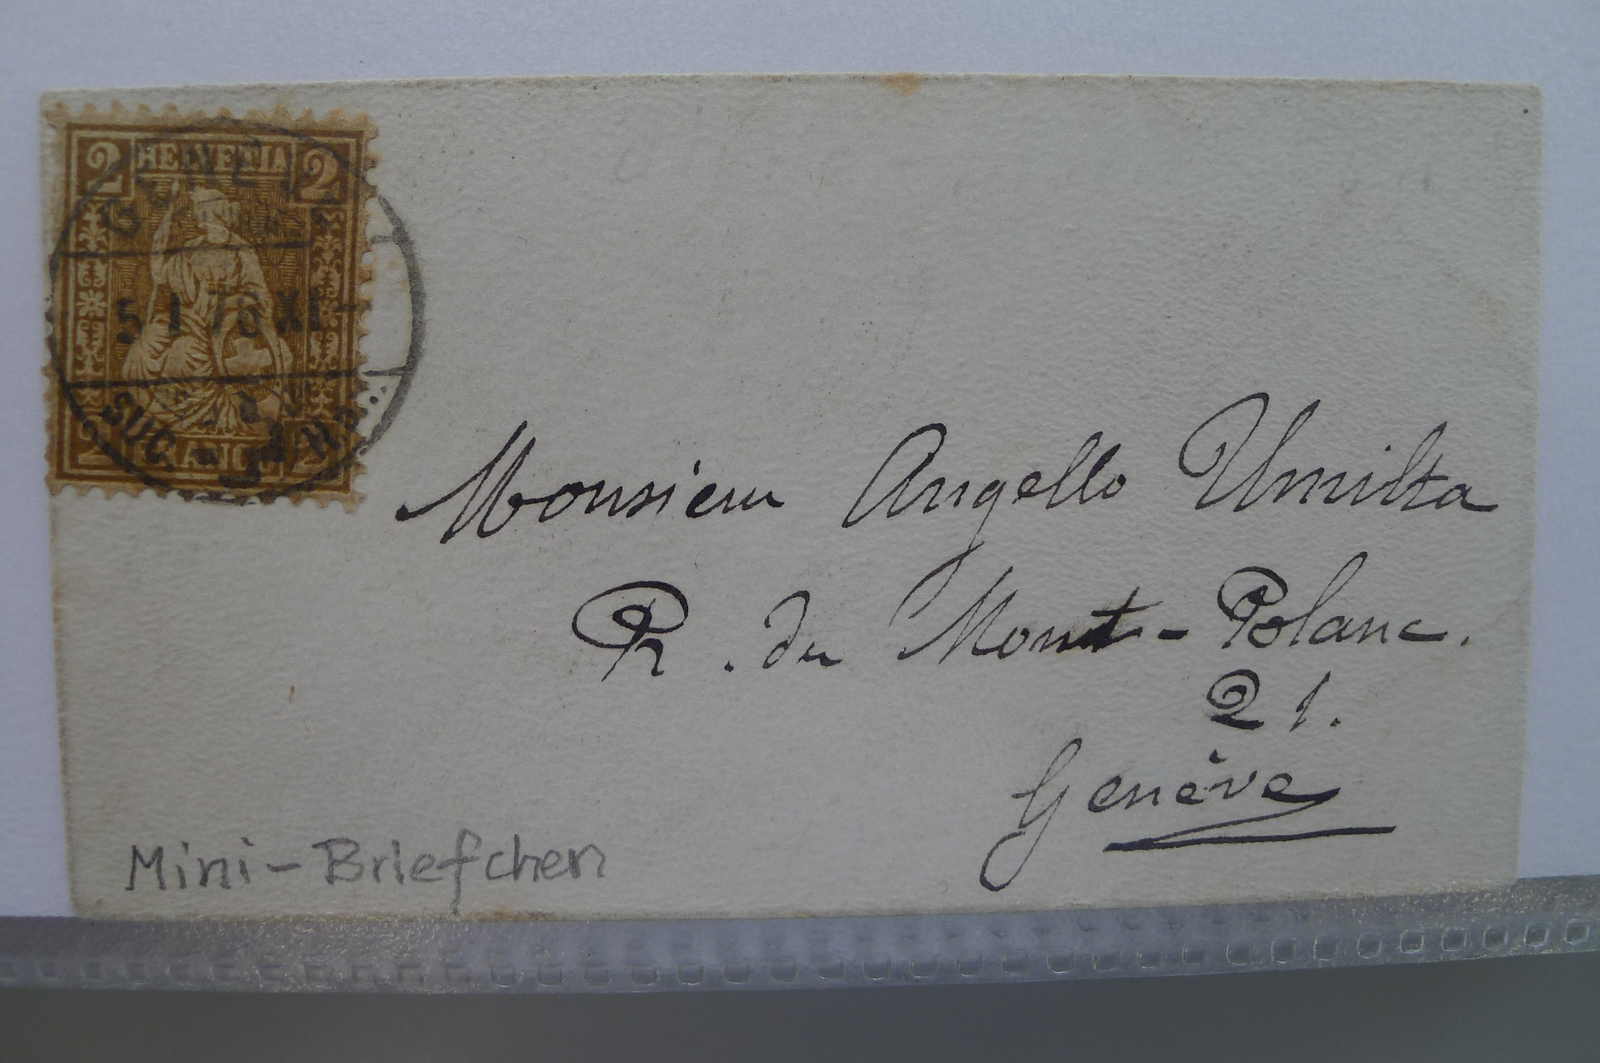 2 HELVETIA 2
GENÈVE
5 I 76 XI-
SUC.
2 FRANCO 2
Monsieur Angello Umilta
R. du Mont-Blanc.
21.
Genève
Mini-Briefchen